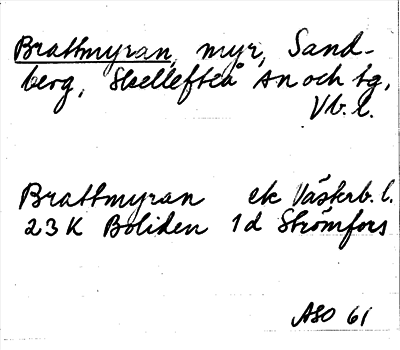 Brattmyran, myr, Sand-
berg, Skellefteå AN och tg,
Vb. l.
Brattmyran ek Västerb. l.
23 K Boliden 1d Strömfors
ASO 61